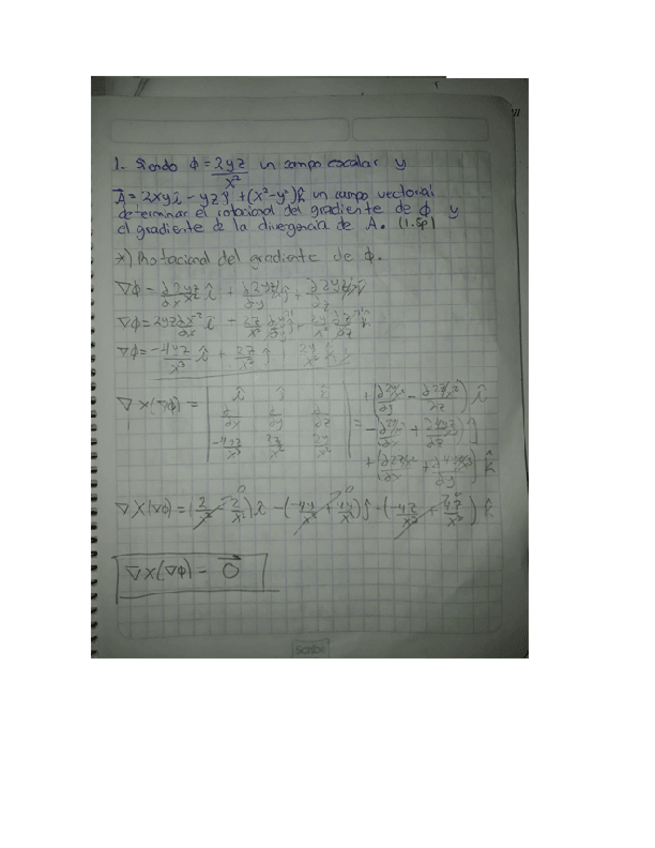 1. Siendo ϕ = 2yz/x² un campo escalar y
A⃗ = 2xyî - yzĵ + (x²-y²)k̂ un campo vectorial
determinar el rotacional del gradiente de ϕ y
el gradiente de la divergencia de A. (1.5p)
*) Rotacional del gradiente de ϕ.
∇ϕ = ∂/∂x 2yz/x² î + ∂/∂y 2yz/x² ĵ + ∂/∂z 2yz/x² k̂
∇ϕ = 2yz ∂x⁻²/∂x î + 2z/x² ∂y/∂y ĵ + 2y/x² ∂z/∂z k̂
∇ϕ = -4yz/x³ î + 2z/x² ĵ + 2y/x² k̂
∇×(∇ϕ) = | î ĵ k̂
∂/∂x ∂/∂y ∂/∂z
-4yz/x³ 2z/x² 2y/x² | =
+(∂/∂y 2y/x² - ∂/∂z 2z/x²) î
-(∂/∂x 2y/x² + ∂/∂z 4yz/x³) ĵ
+(∂/∂x 2z/x² + ∂/∂y 4yz/x³) k̂
∇×(∇ϕ) = (2/x² - 2/x²)⁰ î - (-4y/x³ + 4y/x³)⁰ ĵ + (-4z/x³ + 4z/x³)⁰ k̂
∇×(∇ϕ) = 0⃗
Scribe